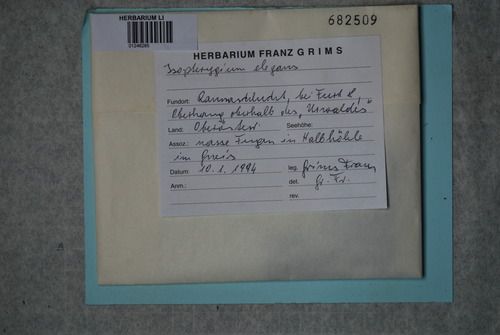 HERBARIUM LJ
01246285
682509
HERBARIUM FRANZ GRIMS
Isopterygium elegans
Fundort: Rannaschlucht, bei Furt,
Oberhang oberhalb des "Urwaldes"
Land: Oberösterr. Seehöhe:
Assoz.: nasse Fugen in Halbhöhle
im Gneis
Datum: 10.1.1994 leg. Grims Franz
Anm.: det. Gr. Fr.
rev.